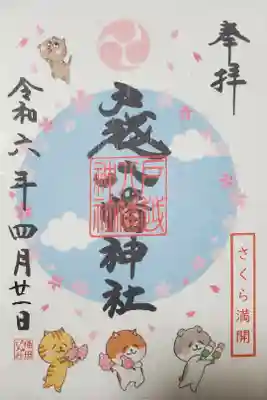 奉拝
戸越八幡神社
戸越
八幡
さくら満開
令和六年四月廿一日